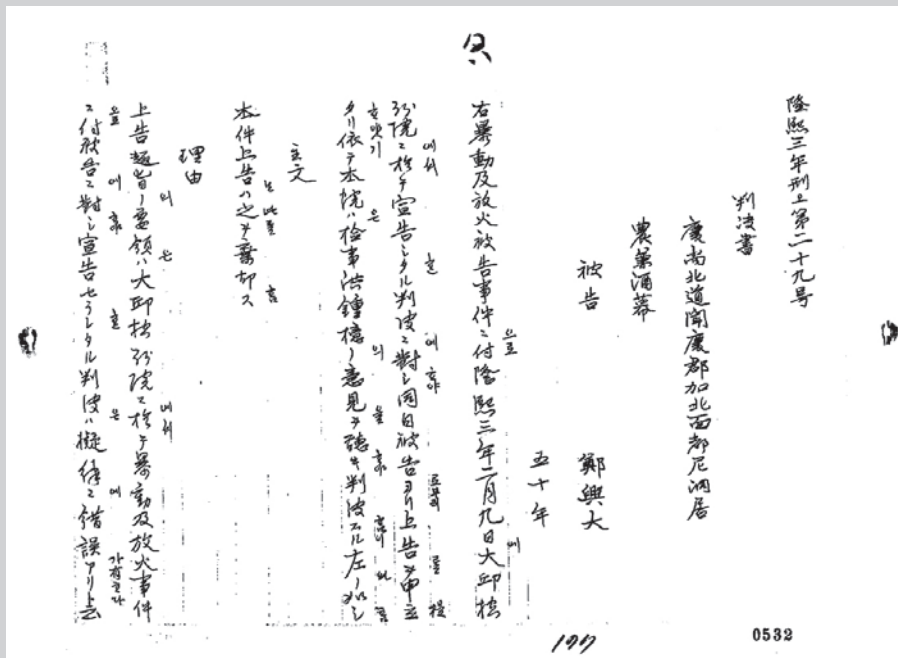 隆熙三年刑上第二十九号
判決書
慶尚北道聞慶郡加北面都尼洞居
農兼酒幕
被告 鄭興大
五十年
右暴動及放火被告事件ニ付隆熙三年二月九日大邱控
訴院ニ於テ宣告シタル判決ニ對シ同日被告ヨリ上告ヲ申立
タリ依テ本院ハ検事洪鍾檍ノ意見ヲ聴キ判決スル左ノ如シ
主文
本件上告ハ之ヲ棄却ス
理由
上告趣旨ノ要領ハ大邱控訴院ニ於テ暴動及放火事件
ニ付被告ニ對シ宣告セラレタル判決ハ擬律ニ錯誤アリト云
177
0532